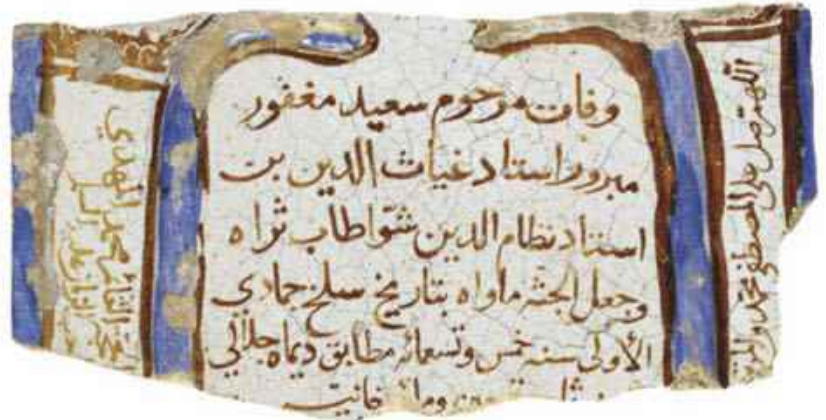 وفات مرحوم سعيد مغفور
مبرور استاد غياث الدين بن
استاد نظام الدين شواطاب ثراه
وجعل الجنة ماواه بتاريخ سلخ جمادي
الأولى سنه خمس وتسعمائه مطابق ديماه جلالي
اللهم صل على المصطفى محمد والمرتضى
محمد المهدي